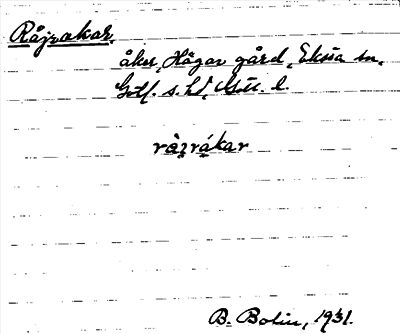 Råjrakar.
åker, Hägar gård, Eksta sn,
Gotl. s. hd, Gotl. l.
råjrákar
B. Bolin, 1931.